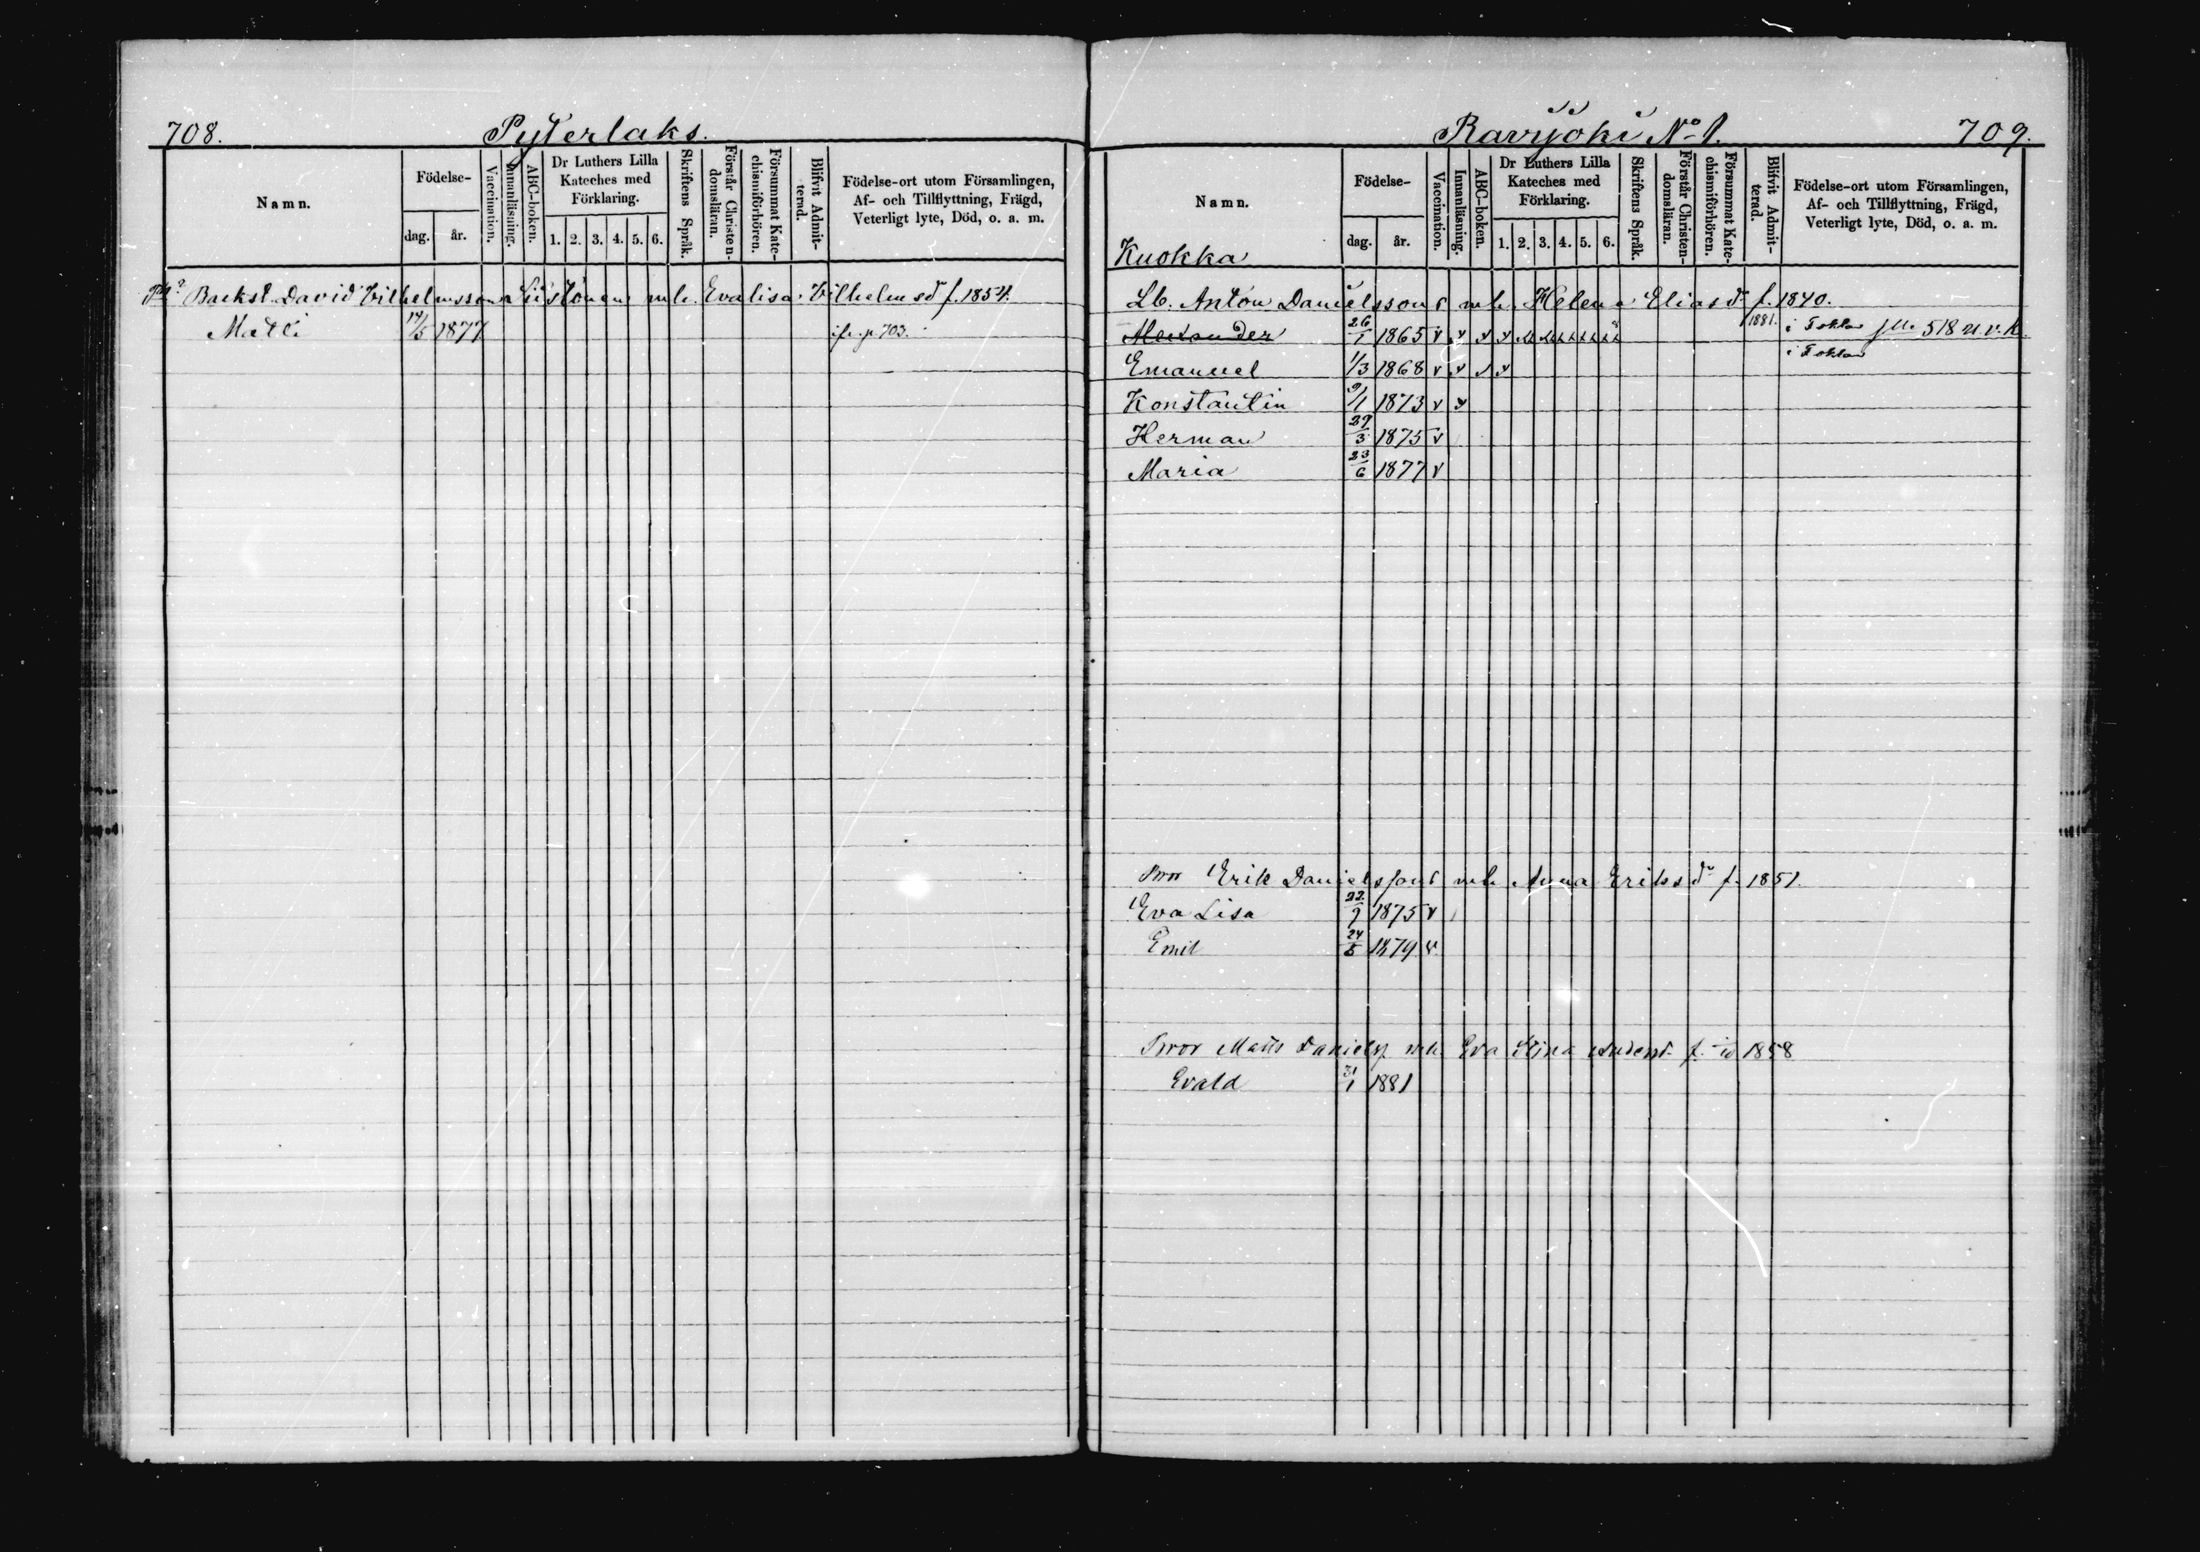 708. Pyterlaks.
Namn. Födelse- dag. år. Vaccination. Innanläsning. ABC-boken. Dr Luthers Lilla Kateches med Förklaring. 1. 2. 3. 4. 5. 6. Skriftens Språk. Förstår Christendomsläran. Försummat Katechismiförhören. Blifvit Admitterad. Födelse-ort utom Församlingen, Af- och Tillflyttning, Frägd, Veterligt lyte, Död, o. a. m.
Backst. David Vilhelmsson mh. Evalisa Vilhelmsd f. 1854.
Matti 14/5 1877 p. 703.
Ravijoki No 1. 709.
Namn. Födelse- dag. år. Vaccination. Innanläsning. ABC-boken. Dr Luthers Lilla Kateches med Förklaring. 1. 2. 3. 4. 5. 6. Skriftens Språk. Förstår Christendomsläran. Försummat Katechismiförhören. Blifvit Admitterad. Födelse-ort utom Församlingen, Af- och Tillflyttning, Frägd, Veterligt lyte, Död, o. a. m.
Kuokka
Lb. Anton Danielssons mh. Helena Eliasdr f. 1840.
Alexander 26/1 1865 v 1881. 518
Emanuel 1/3 1868 v
Konstantin 9/1 1873 v
Herman 29/3 1875 v
Maria 23/6 1877 v
Bror Erik Danielssons mh Anna Eriksdr f. 1851.
Eva Lisa 22/9 1875 v
Emil 24/5 1879 v.
Bror Matts Daniels mh Eva Stina f. 1858
Evald 31/1 1881